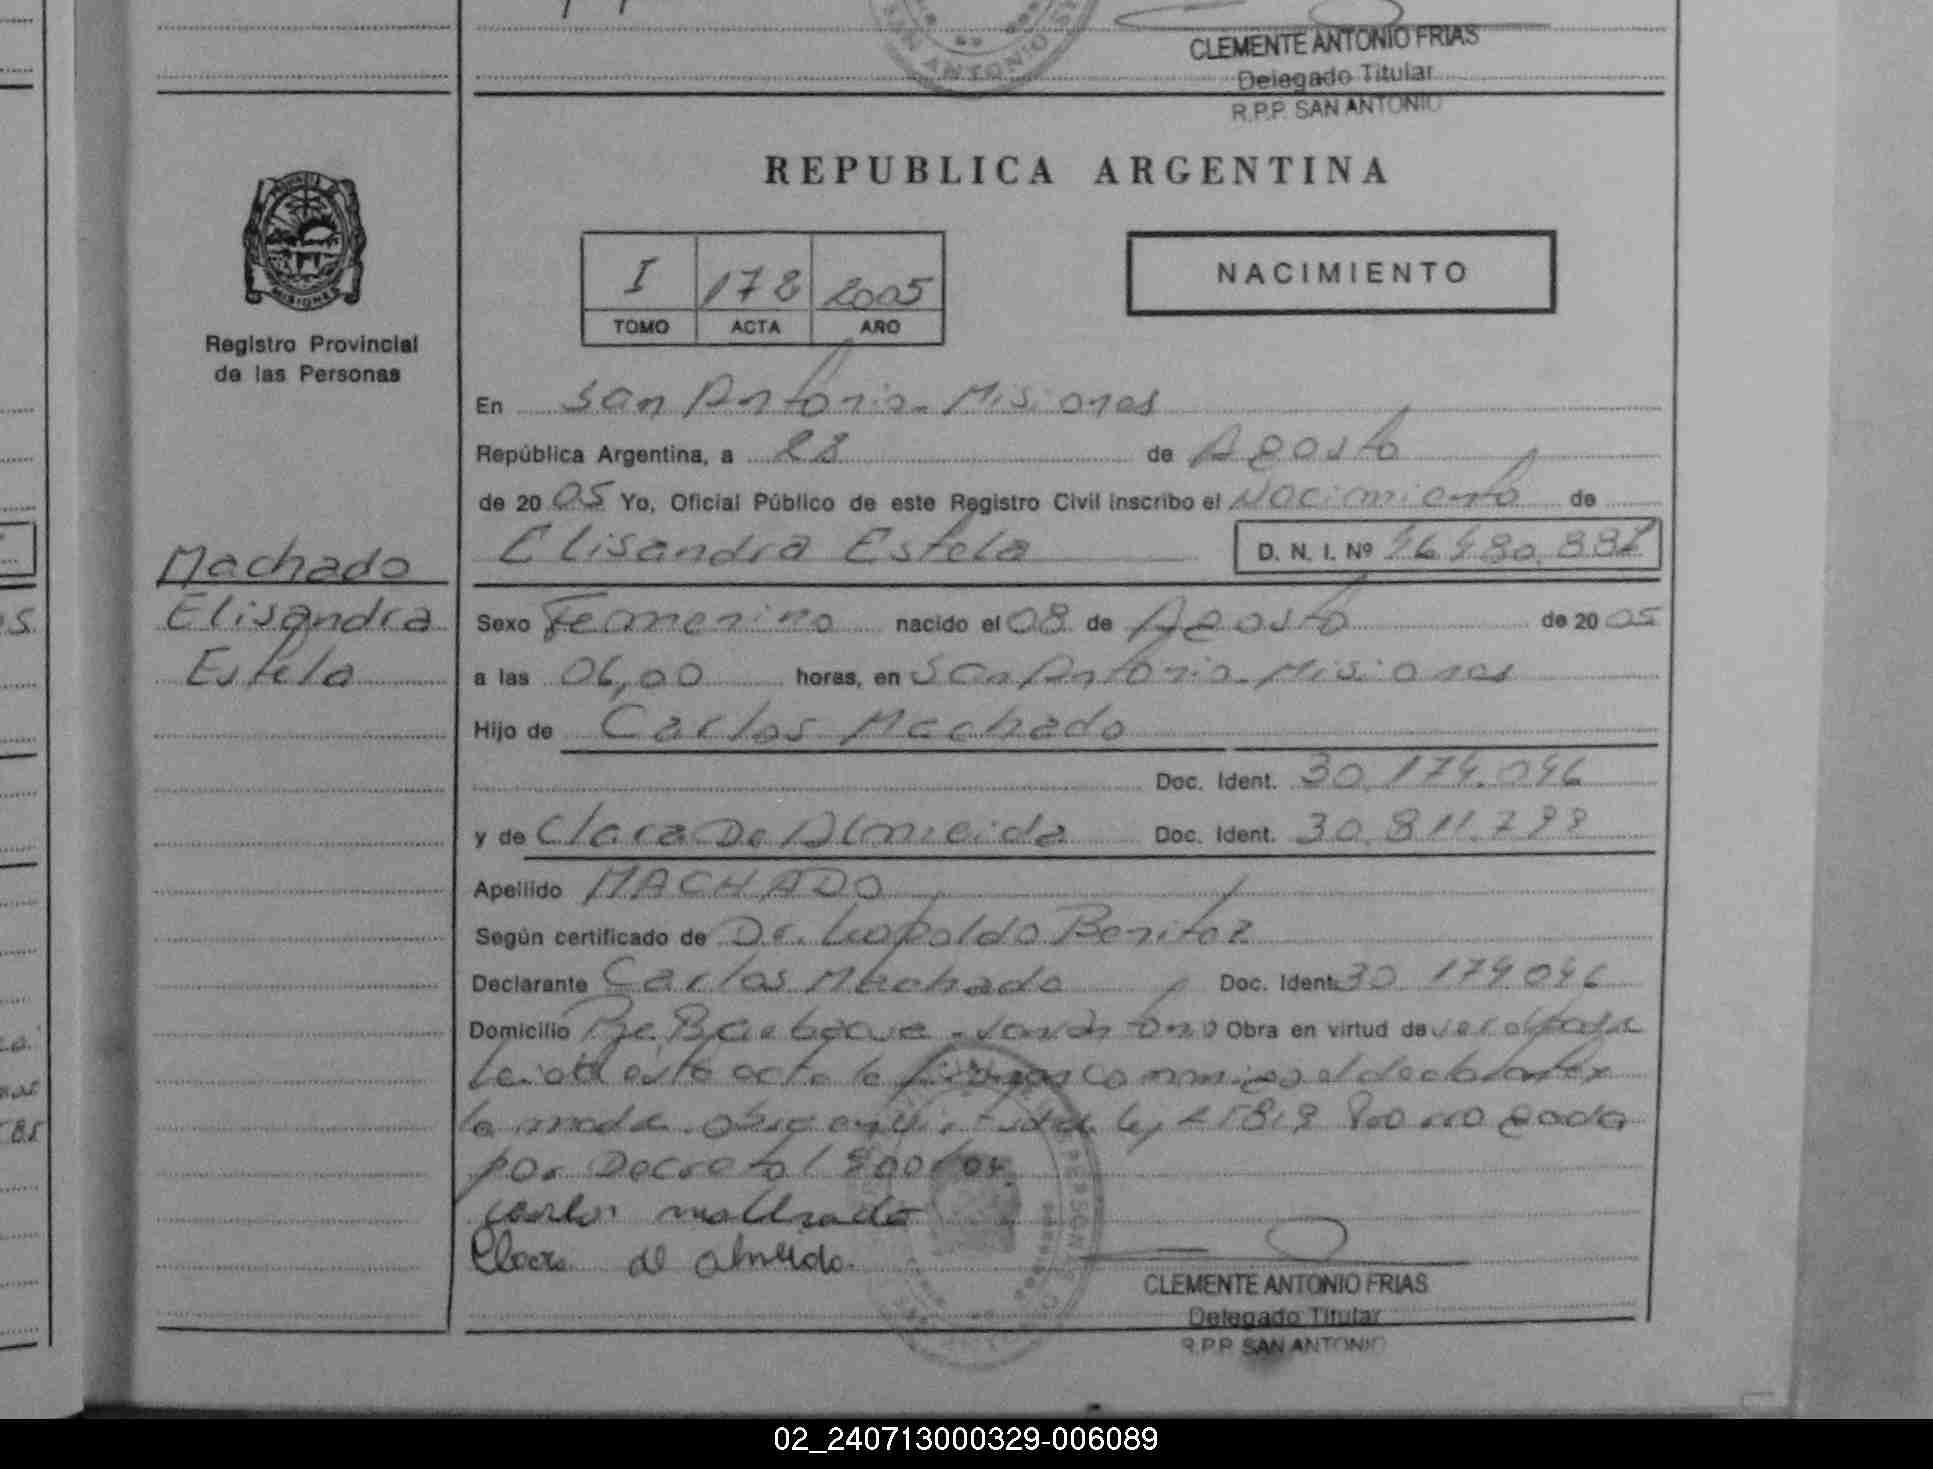 SAN ANTONIO
CLEMENTE ANTONIO FRIAS
Delegado Titular
R.P.P. SAN ANTONIO
REPUBLICA ARGENTINA
PROVINCIA DE
MISIONES
I 178 2005
TOMO ACTA AÑO
NACIMIENTO
Registro Provincial
de las Personas
En San Antonio - Misiones
República Argentina, a 28 de Agosto
de 20 05 Yo, Oficial Público de este Registro Civil inscribo el Nacimiento de
Elisandra Estela D. N. I. Nº 46.480.88
Machado
Elisandra
Estela
Sexo Femenino nacido el 08 de Agosto de 20 05
a las 06,00 horas, en San Antonio - Misiones
Hijo de Carlos Machado
Doc. Ident. 30.174.046
y de Clara De Almeida Doc. Ident. 30.811.798
Apellido MACHADO
Según certificado de Dr. Leopoldo Benitez
Declarante Carlos Machado Doc. Ident. 30.174.046
Domicilio Pje. San Antonio Obra en virtud de ser
Leida esta acta la firman conmigo el declarante y
la madre. Obra en virtud ley 25819 prorrogada
por Decreto
Carlos machado
Clara de almeida.
CLEMENTE ANTONIO FRIAS
Delegado Titular
R.P.P. SAN ANTONIO
02_240713000329-006089